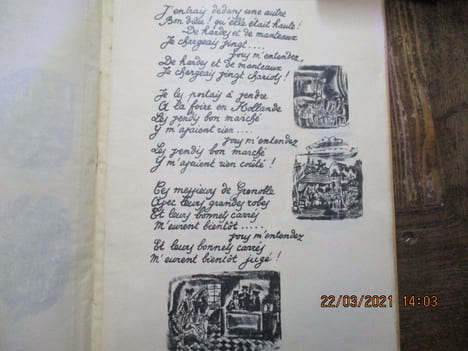 J'entrais dedans une autre
Bon dieu! qu'elle était haute!
De hardes et de manteaux
Je chargeais vingt....
vous m'entendez,
De hardes et de manteaux
Je chargeais vingt chariots!
Je les portais à vendre
A la foire en Hollande
Les vendis bon marché
Y m'avaient rien....
vous m'entendez
Les vendis bon marché
Y m'avaient rien coûté!
Ces messieurs de Grenoble
Avec leurs grandes robes
Et leurs bonnets carrés
M'eurent bientôt.....
vous m'entendez
Et leurs bonnets carrés
M'eurent bientôt jugé!
22/03/2021 14:03